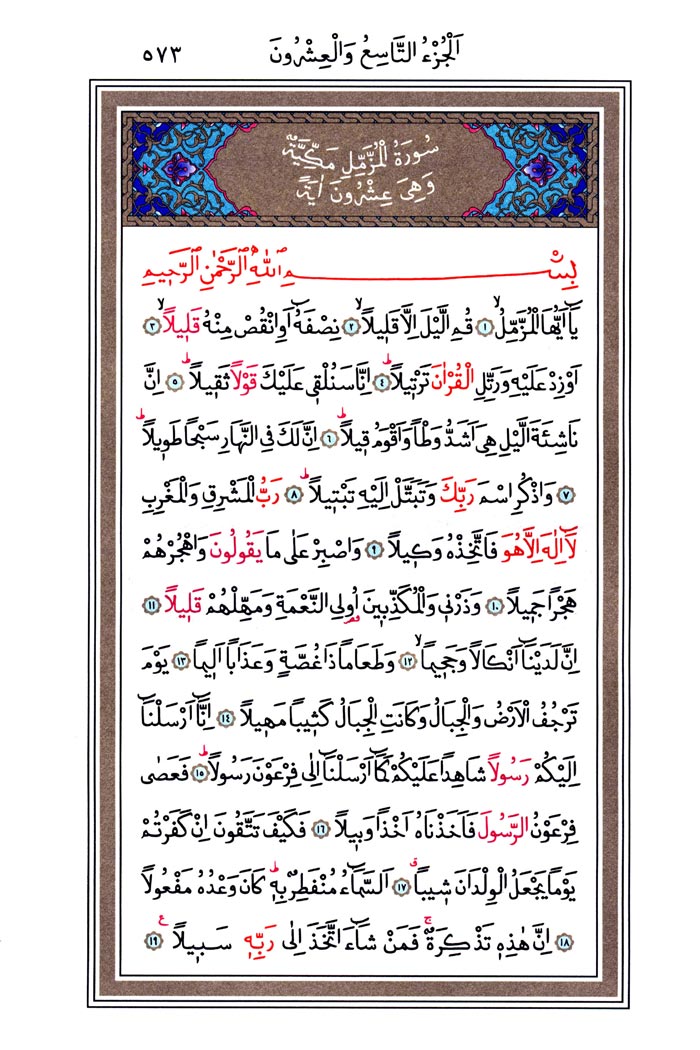 اَلْجُزْءُ التَّاسِعُ وَالْعِشْرُونَ ٥٧٣
سُورَةُ الْمُزَّمِّلِ مَكِّيَّةٌ
وَهِىَ عِشْرُونَ اٰيَةً
بِسْمِ اللّٰهِ الرَّحْمٰنِ الرَّحٖيمِ
يَٓا اَيُّهَا الْمُزَّمِّلُۙ ١ قُمِ الَّيْلَ اِلَّا قَلٖيلاًۙ ٢ نِصْفَهُٓ اَوِانْقُصْ مِنْهُ قَلٖيلاًۙ ٣
اَوْزِدْ عَلَيْهِ وَرَتِّلِ الْقُرْاٰنَ تَرْتٖيلاًؕ ٤ اِنَّا سَنُلْقٖى عَلَيْكَ قَوْلاً ثَقٖيلاًؕ ٥ اِنَّ
نَاشِئَةَ الَّيْلِ هِىَ اَشَدُّ وَطْـٔاً وَاَقْوَمُ قٖيلاًؕ ٦ اِنَّ لَكَ فِى النَّهَارِ سَبْحاً طَوٖيلاًؕ
٧ وَاذْكُرِ اسْمَ رَبِّكَ وَتَبَتَّلْ اِلَيْهِ تَبْتٖيلاًؕ ٨ رَبُّ الْمَشْرِقِ وَالْمَغْرِبِ
لَٓا اِلٰهَ اِلَّا هُوَ فَاتَّخِذْهُ وَكٖيلاً ٩ وَاصْبِرْ عَلٰى مَا يَقُولُونَ وَاهْجُرْهُمْ
هَجْراً جَمٖيلاً ١٠ وَذَرْنٖى وَالْمُكَذِّبٖينَ اُولِى النَّعْمَةِ وَمَهِّلْهُمْ قَلٖيلاً ١١
اِنَّ لَدَيْنَٓا اَنْكَالاً وَجَحٖيماًۙ ١٢ وَطَعَاماً ذَا غُصَّةٍ وَعَذَاباً اَلٖيماً ١٣ يَوْمَ
تَرْجُفُ الْاَرْضُ وَالْجِبَالُ وَكَانَتِ الْجِبَالُ كَثٖيباً مَهٖيلاً ١٤ اِنَّٓا اَرْسَلْنَٓا
اِلَيْكُمْ رَسُولاً شَاهِداً عَلَيْكُمْ كَمَٓا اَرْسَلْنَٓا اِلٰى فِرْعَوْنَ رَسُولاًؕ ١٥ فَعَصٰى
فِرْعَوْنُ الرَّسُولَ فَاَخَذْنَاهُ اَخْذاً وَبٖيلاً ١٦ فَكَيْفَ تَتَّقُونَ اِنْ كَفَرْتُمْ
يَوْماً يَجْعَلُ الْوِلْدَانَ شٖيباًۗ ١٧ اَلسَّمَٓاءُ مُنْفَطِرٌ بِهٖؕ كَانَ وَعْدُهُ مَفْعُولاً
١٨ اِنَّ هٰذِهٖ تَذْكِرَةٌۚ فَمَنْ شَٓاءَ اتَّخَذَ اِلٰى رَبِّهٖ سَبٖيلاً ع ١٩